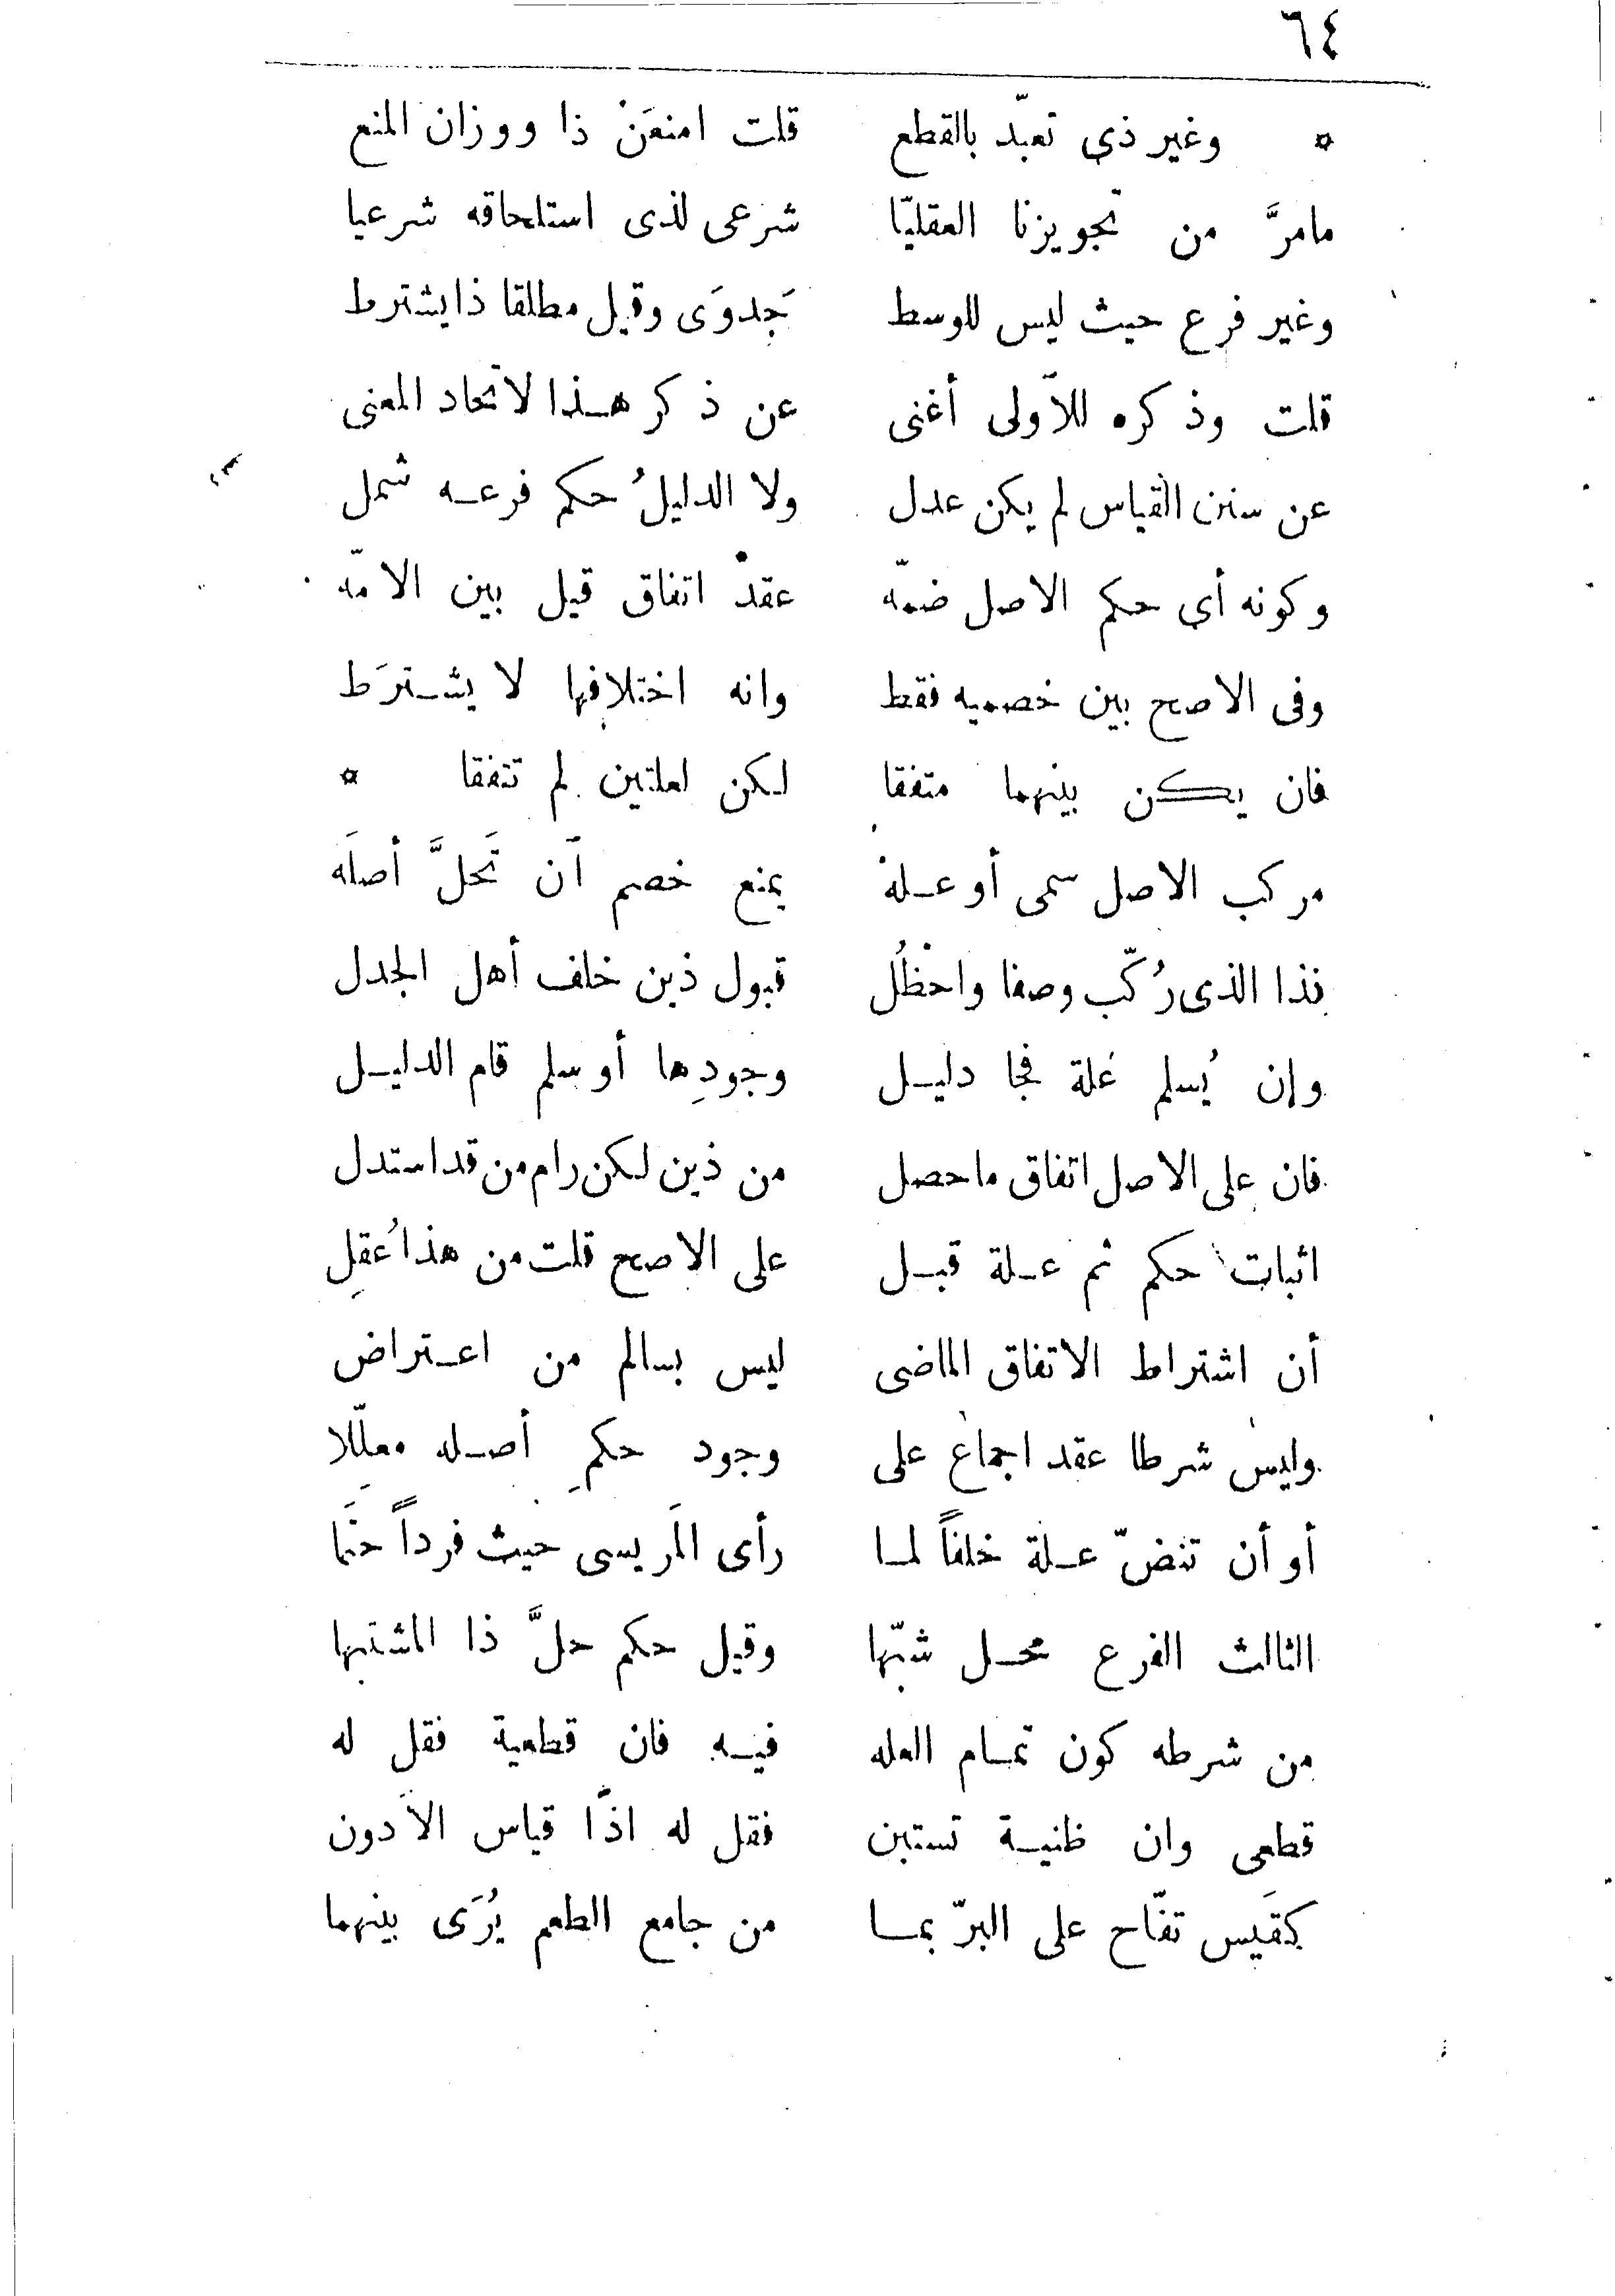 ٦٤
* وغير ذى تعبّد بالقطع قلت امنعَنْ ذا ووزان المنع
مامرَّ من تجويزنا العقليّا شرعى لذى استلحاقه شرعيا
وغير فرع حيث ليس للوسط جَدوَى وقيل مطلقا ذايشترط
قلت وذكره للاَولى أغنى عن ذكر هذا لاتحاد المعنى
عن سنن القياس لم يكن عدل ولا الدليلُ حكم فرعه شمل
وكونه أى حكم الاصل ضمّه عقدْ اتفاق قيل بين الامّه
وفى الاصح بين خصميه فقط وانه اختلافها لا يشترَط
فان يكن بينهما متفقا لكن لعلتين لم تتفقا *
مركب الاصل سمى أو عله يمنع خصم اَن تَحلَّ أصلَه
فذا الذى رُكّب وصفا واحظُل قبول ذين خلف أهل الجدل
وإن يُسلم عُلة فجا دليل وجودِها أو سلم قام الدليل
فان على الاصل اتفاق ماحصل من ذين لكن رام من قد استدل
اثبات حكم ثم علة قبل على الاصح قلت من هذا عُقِل
أن اشتراط الاتفاق الماضى ليس بسالم من اعتراض
وليس شرطا عقد اجماع على وجود حكمِ أصله معلّلِا
أو أن تنصّ علة خلفاً لما رأى المَريسى حيث فرداً حتَما
الثالث الفرع محل شبّها وقيل حكم حلَّ ذا المشتبها
من شرطه كون تمام العله فيه فان قطعية فقل له
قطعى وان ظنية تستبن فقل له اذًا قياس الاَدون
كقَيس تفّاح على البرّ بما من جامع الطعم يُرَى بينهما